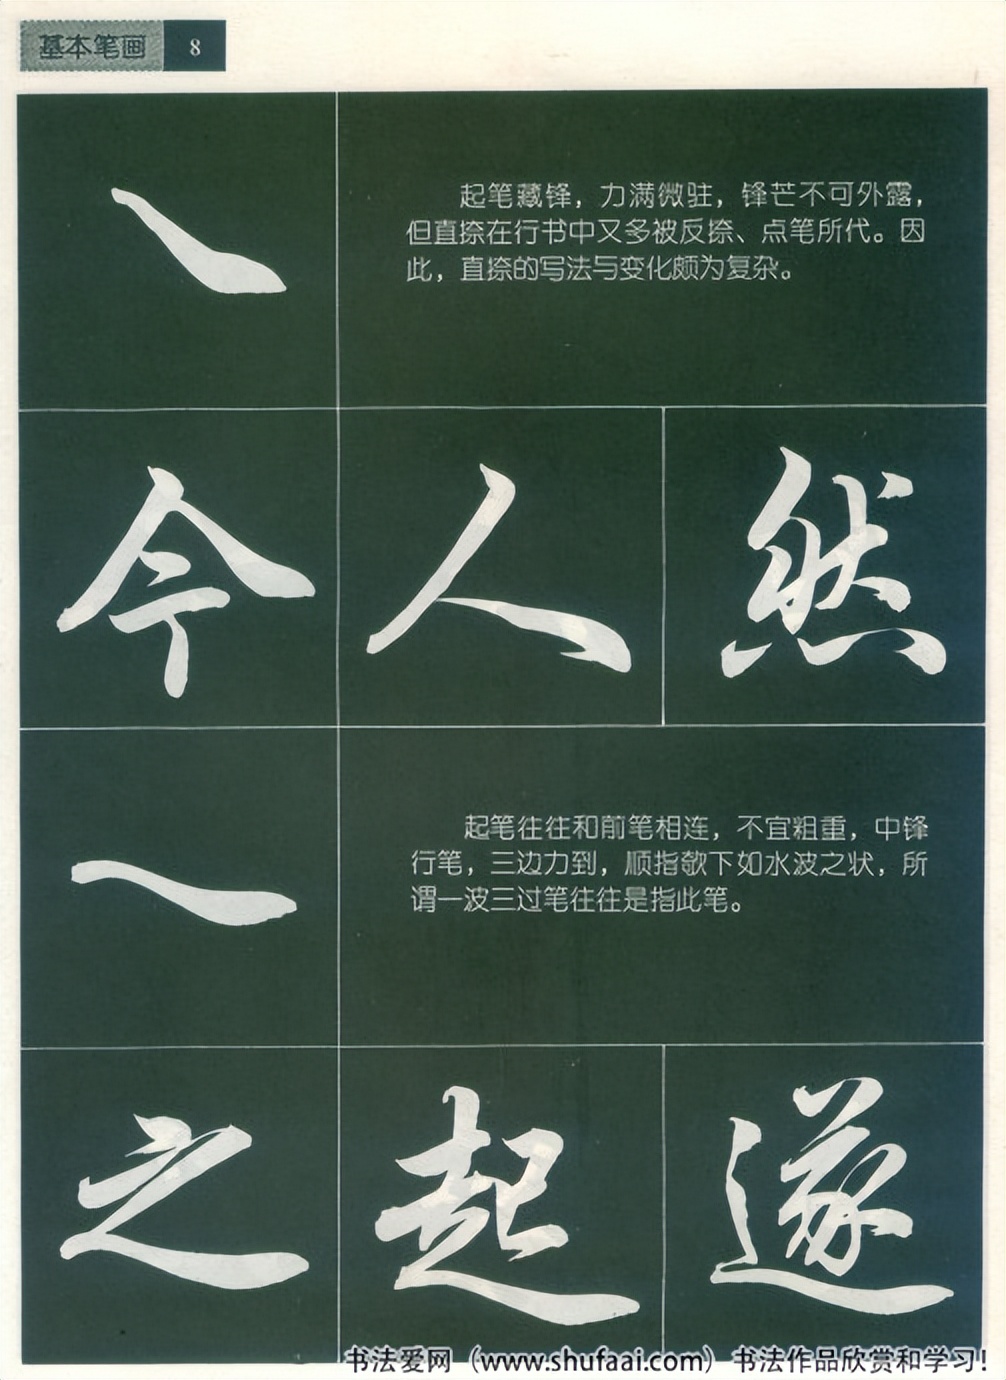 基本笔画 8
起笔藏锋，力满微驻，锋芒不可外露，
但直捺在行书中又多被反捺、点笔所代。因
此，直捺的写法与变化颇为复杂。
今 人 然
起笔往往和前笔相连，不宜粗重，中锋
行笔，三边力到，顺指欹下如水波之状，所
谓一波三过笔往往是指此笔。
之 起 遂
书法爱网（www.shufaai.com）书法作品欣赏和学习！